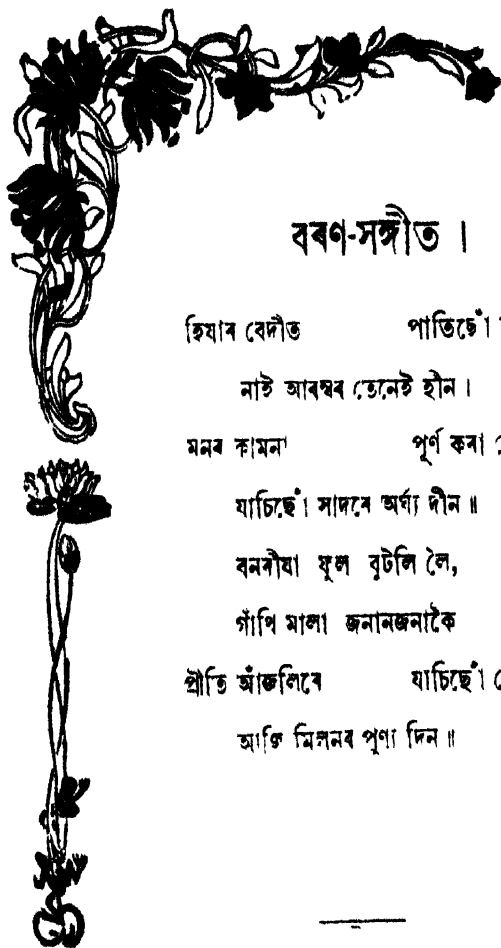 বৰণ-সঙ্গীত ।
হিযাৰ বেদীত পাতিছোঁ
নাই আৰম্বৰ তেনেই হীন ।
মনৰ কামনা পূৰ্ণ কৰা
যাচিছোঁ সাদৰে অৰ্ঘ্য দীন ॥
বনৰীযা ফুল বুটলি লৈ,
গাঁথি মালা জনানজনাকৈ
প্ৰীতি আঁজলিৰে যাচিছোঁ
আজি মিলনৰ পূণ্য দিন ॥